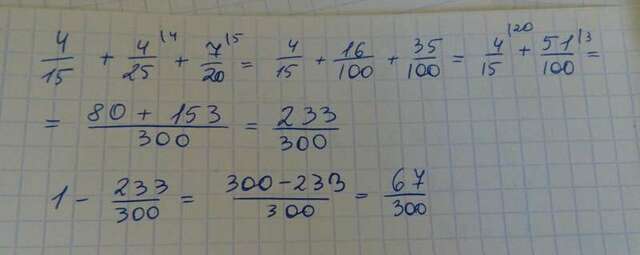 4/15 + 4/25 \4 + 7/20 \5 = 4/15 + 16/100 + 35/100 = 4/15 \20 + 51/100 \3 =
= (80 + 153)/300 = 233/300
1 - 233/300 = (300 - 233)/300 = 67/300